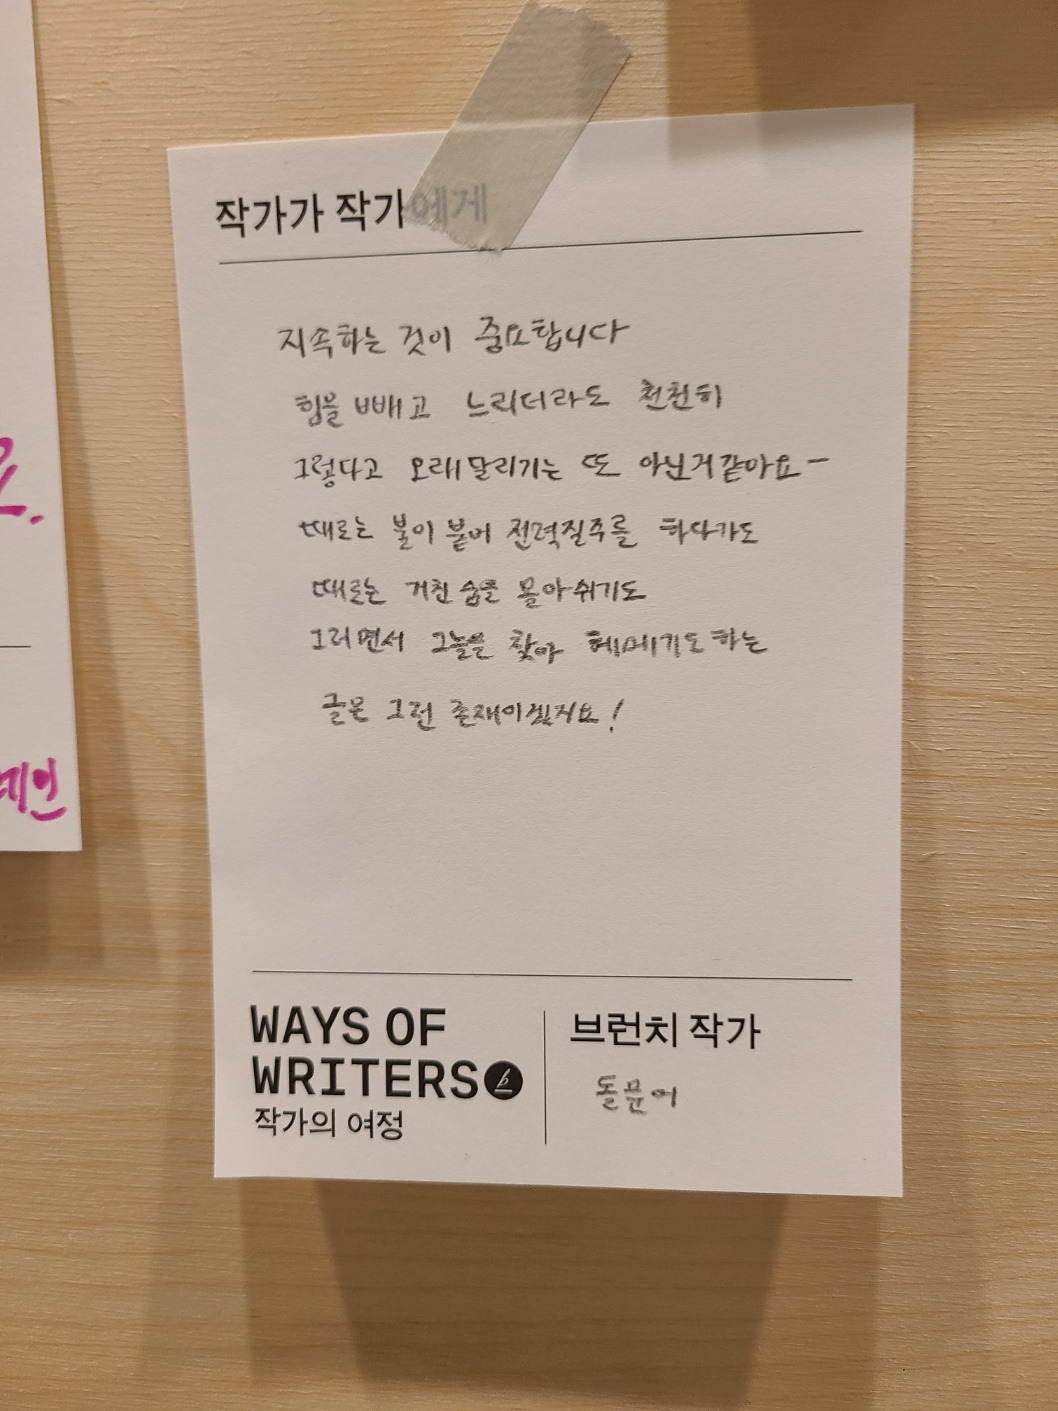 작가가 작가에게
지속하는 것이 중요합니다
힘을 빼고 느리더라도 천천히
그렇다고 오래달리기는 또 아닌거같아요-
때로는 불이 붙어 전력질주를 하다가도
때로는 거친 숨을 몰아쉬기도
그러면서 그늘을 찾아 헤메기도 하는
글은 그런 존재이겠지요!
WAYS OF
WRITERS
작가의 여정
브런치 작가
돌문어